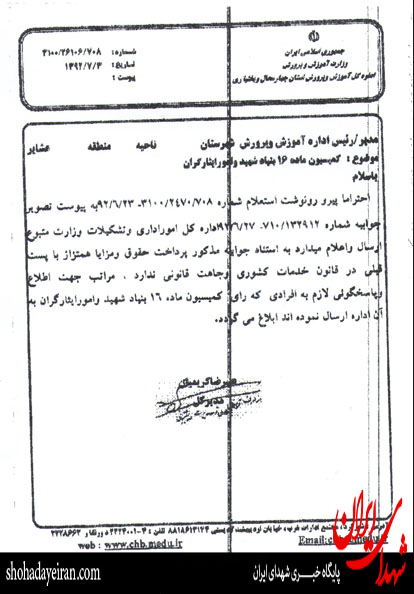 جمهوری اسلامی ایران
وزارت آموزش و پرورش
اداره کل آموزش وپرورش استان چهارمحال وبختیاری
شماره: ۳۱۰۰/۲۶۱۰۶/۷۰۸
تاریخ: ۱۳۹۲/۷/۳
پیوست:
مدیر/رئیس اداره آموزش وپرورش شهرستان ناحیه منطقه عشایر
موضوع: کمیسیون ماده ۱۶ بنیاد شهید وامورایثارگران
باسلام
احتراما پیرو رونوشت استعلام شماره ۳۱۰۰/۲۴۷۰/۷۰۸-۹۲/۶/۲۳ به پیوست تصویر
جوابیه شماره ۷۱۰/۱۳۲۹۱۲-۹۲/۶/۲۷ اداره کل اموراداری وتشکیلات وزارت متبوع
ارسال واعلام میدارد به استناد جوابیه مذکور پرداخت حقوق ومزایا همتراز با پست
قبلی در قانون خدمات کشوری وجاهت قانونی ندارد. مراتب جهت اطلاع
وپاسخگوئی لازم به افرادی که رای کمیسیون ماده ۱۶ بنیاد شهید وامورایثارگران به
آن اداره ارسال نموده اند ابلاغ می گردد.
علیرضا کریمیان
مدیرکل
مجتمع ادارات غرب، خیابان
web : www.chb.medu.ir
Email:
شهدای ایران
shohadayeiran.com
پایگاه خبری شهدای ایران